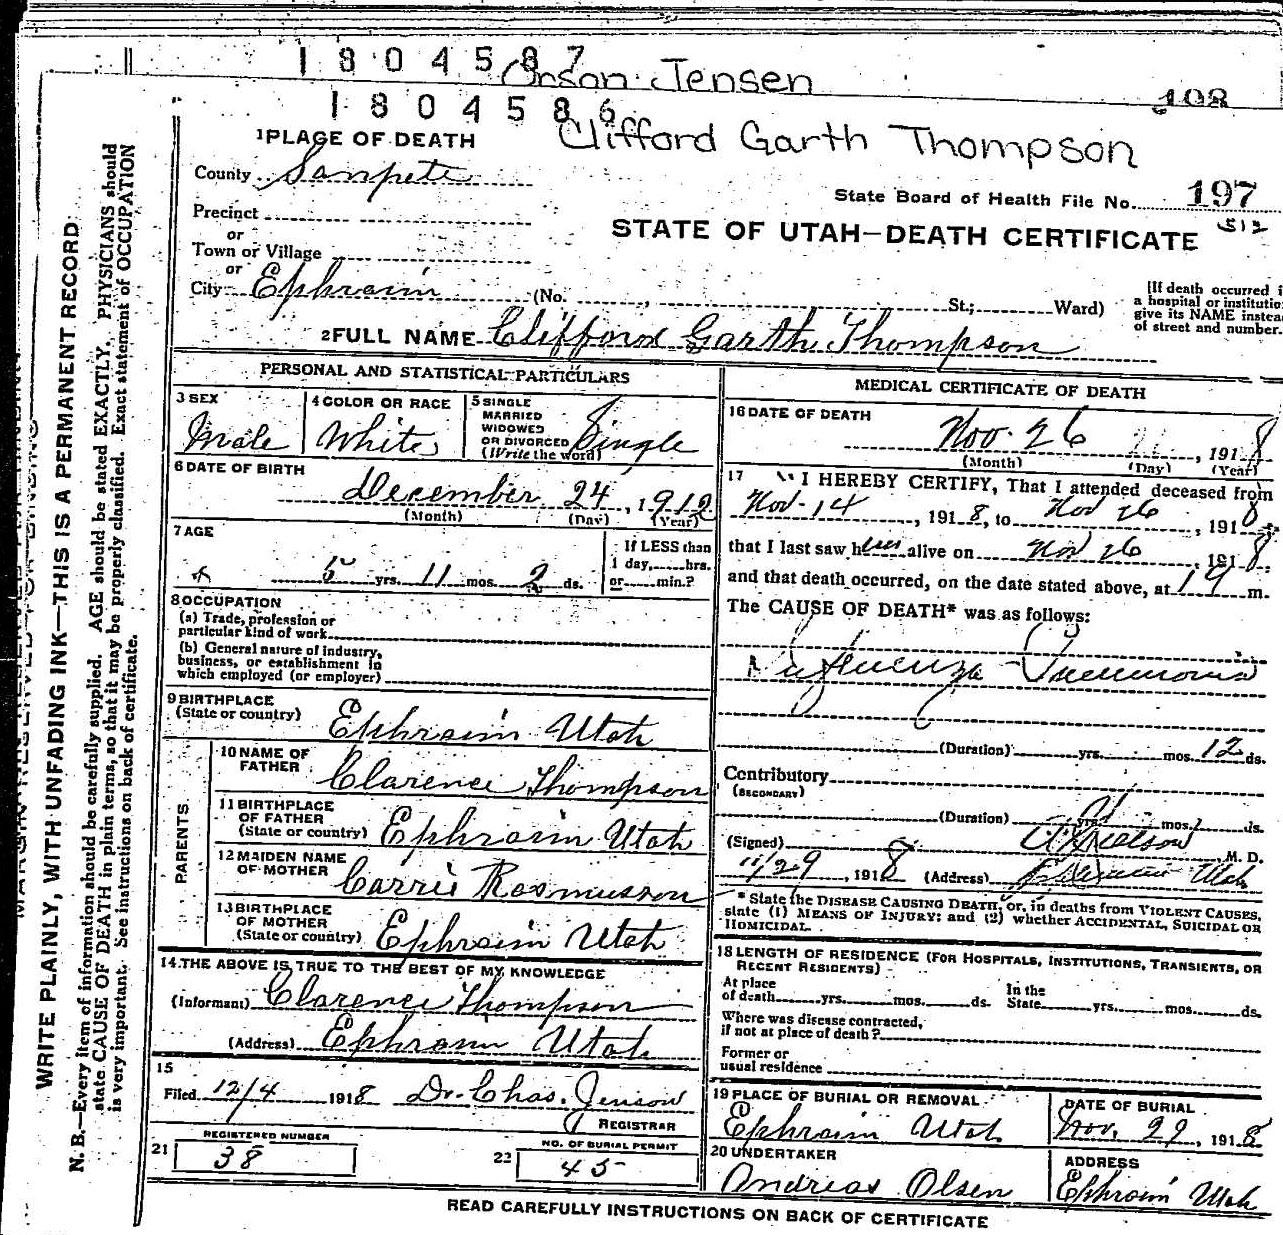 1804587
Orson Jensen
108
1804586
Clifford Garth Thompson
1 PLACE OF DEATH
County Sanpete
State Board of Health File No. 197
512
Precinct
or
STATE OF UTAH—DEATH CERTIFICATE
Town or Village
or
City Ephraim (No. , St.; Ward)
[If death occurred i
a hospital or institutio
give its NAME instea
of street and number.
2 FULL NAME Clifford Garth Thompson
PERSONAL AND STATISTICAL PARTICULARS
3 SEX Male
4 COLOR OR RACE White
5 SINGLE MARRIED WIDOWED OR DIVORCED (Write the word) Single
6 DATE OF BIRTH
December 24, 1912
(Month) (Day) (Year)
7 AGE
5 yrs. 11 mos. 2 ds.
If LESS than
1 day, hrs.
or min.?
8 OCCUPATION
(a) Trade, profession or
particular kind of work
(b) General nature of industry,
business, or establishment in
which employed (or employer)
9 BIRTHPLACE
(State or country) Ephraim Utah
PARENTS
10 NAME OF FATHER Clarence Thompson
11 BIRTHPLACE OF FATHER (State or country) Ephraim Utah
12 MAIDEN NAME OF MOTHER Carrie Rasmusson
13 BIRTHPLACE OF MOTHER (State or country) Ephraim Utah
14. THE ABOVE IS TRUE TO THE BEST OF MY KNOWLEDGE
(Informant) Clarence Thompson
(Address) Ephraim Utah
15
Filed 12/4 1918 Dr. Chas. Jenson
REGISTRAR
21 REGISTERED NUMBER 38
22 NO. OF BURIAL PERMIT 45
MEDICAL CERTIFICATE OF DEATH
16 DATE OF DEATH
Nov. 26, 1918
(Month) (Day) (Year)
17 I HEREBY CERTIFY, That I attended deceased from
Nov-14, 1918, to Nov 26, 1918,
that I last saw him alive on Nov 26 1918,
and that death occurred, on the date stated above, at m.
The CAUSE OF DEATH* was as follows:
Influenza-Pneumonia
(Duration) yrs. mos. 12 ds.
Contributory
(SECONDARY)
(Duration) yrs. mos. ds.
(Signed) M. D.
11/29, 1918 (Address) Ephraim Utah
* State the DISEASE CAUSING DEATH, or, in deaths from VIOLENT CAUSES,
state (1) MEANS OF INJURY; and (2) whether ACCIDENTAL, SUICIDAL OR
HOMICIDAL.
18 LENGTH OF RESIDENCE (FOR HOSPITALS, INSTITUTIONS, TRANSIENTS, OR
RECENT RESIDENTS)
At place
of death yrs. mos. ds.
In the
State yrs. mos. ds.
Where was disease contracted,
if not at place of death?
Former or
usual residence
19 PLACE OF BURIAL OR REMOVAL
Ephraim Utah
DATE OF BURIAL
Nov. 29, 1918
20 UNDERTAKER
Andreas Olsen
ADDRESS
Ephraim Utah
READ CAREFULLY INSTRUCTIONS ON BACK OF CERTIFICATE
WRITE PLAINLY, WITH UNFADING INK—THIS IS A PERMANENT RECORD
N. B.—Every item of information should be carefully supplied. AGE should be stated EXACTLY. PHYSICIANS should
state CAUSE OF DEATH in plain terms, so that it may be properly classified. Exact statement of OCCUPATION
is very important. See instructions on back of certificate.